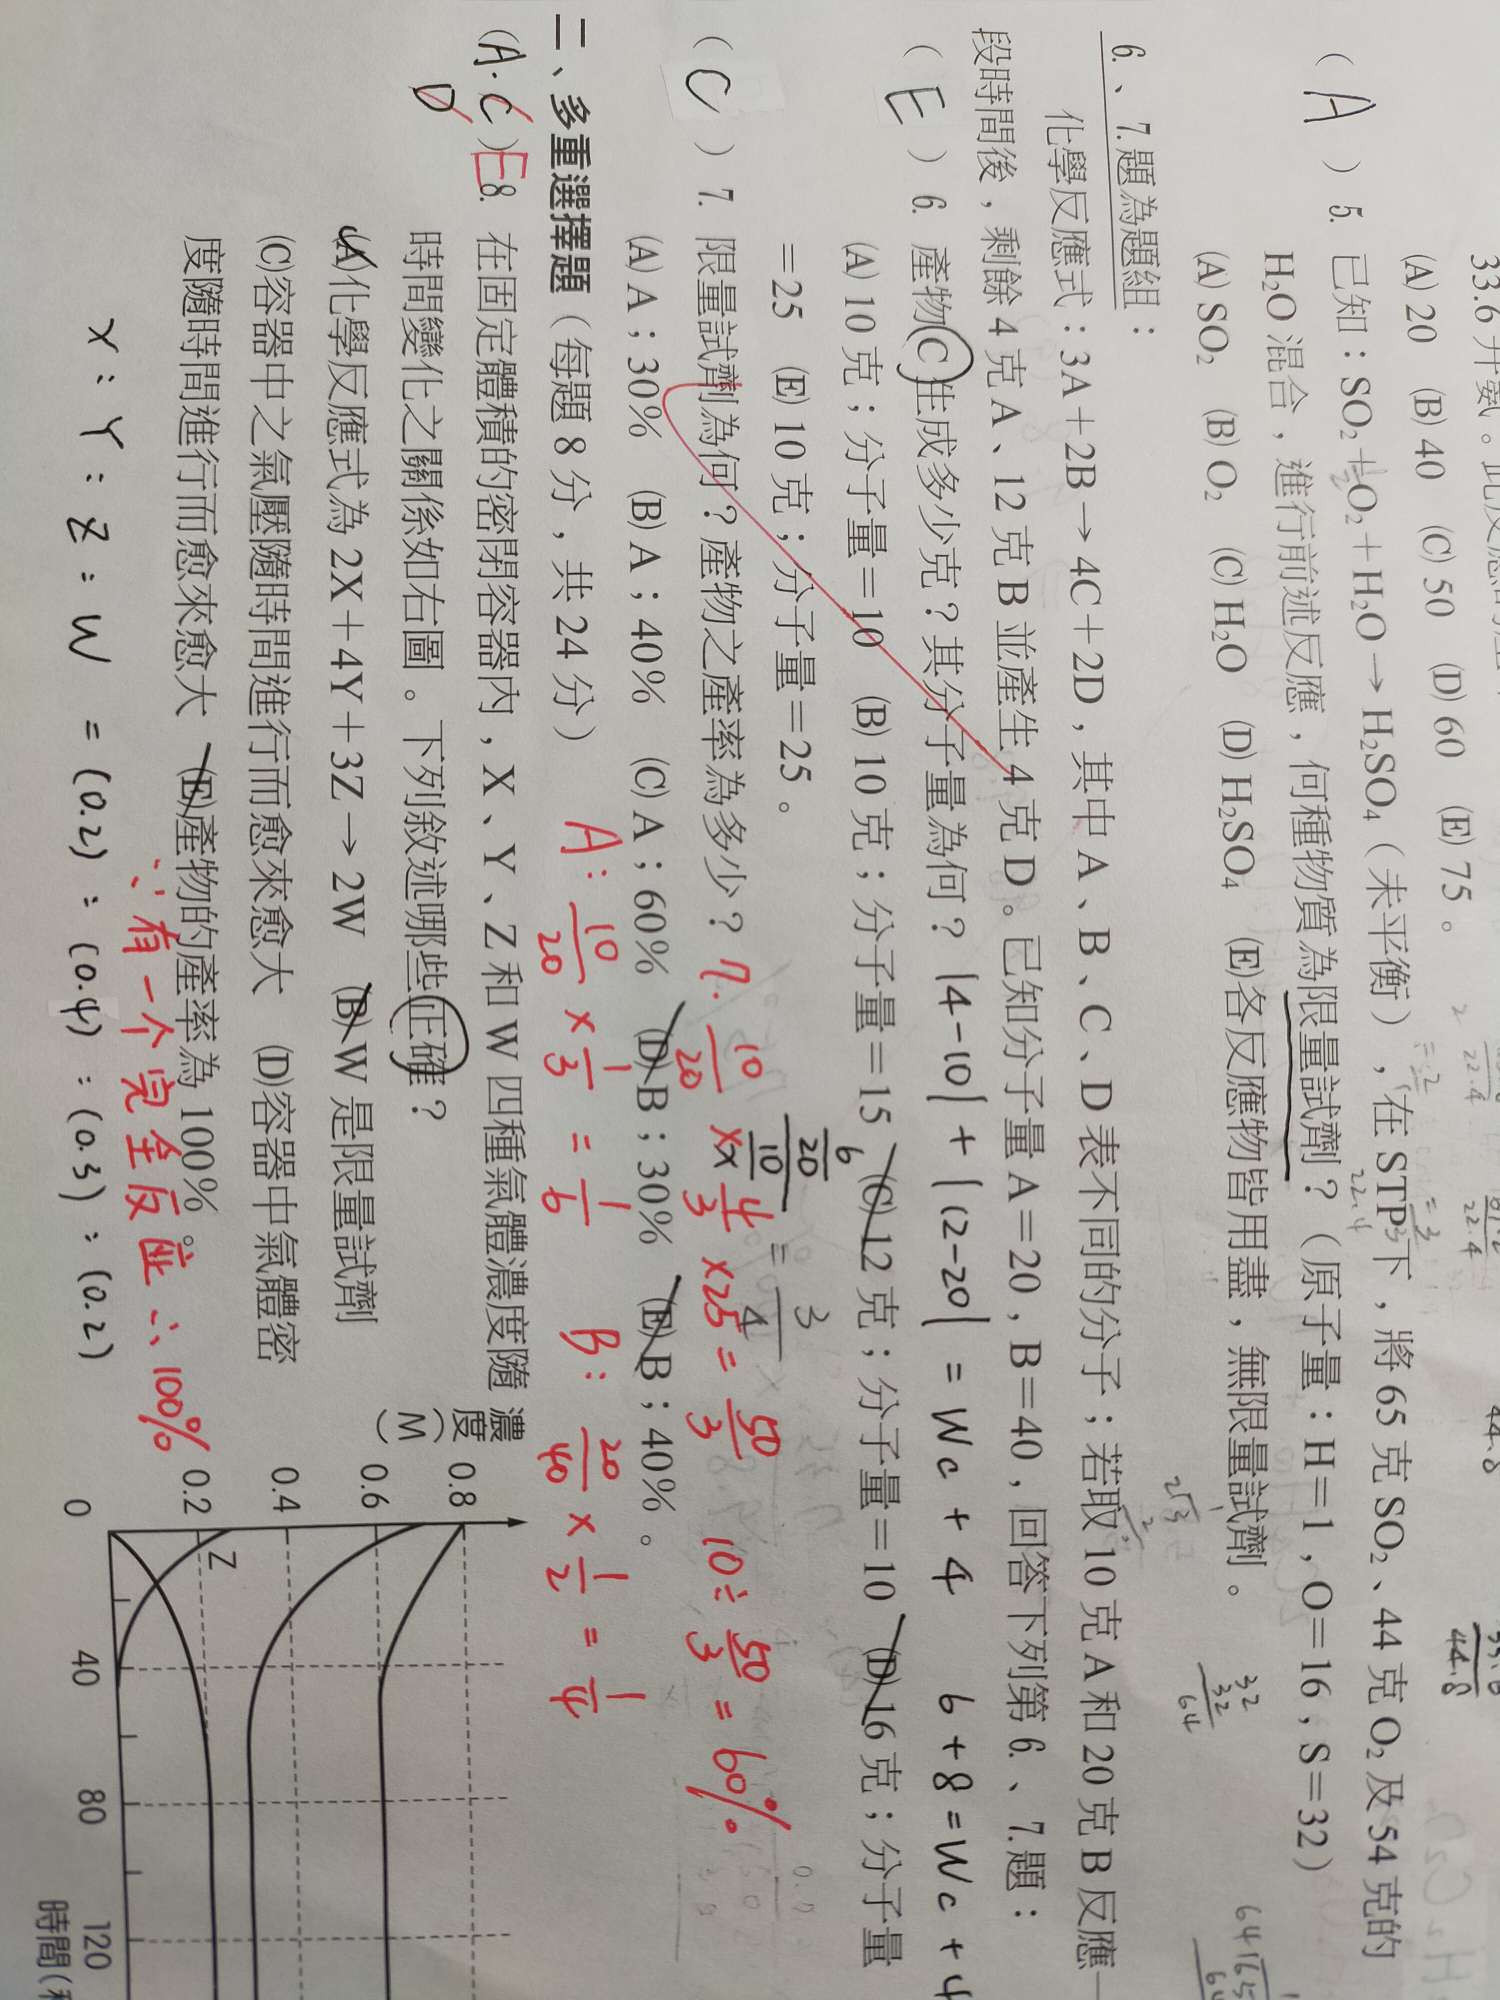 33.6升氨。此反應的產
(A) 20 (B) 40 (C) 50 (D) 60 (E) 75。
(A) 5. 已知：SO₂＋½O₂＋H₂O → H₂SO₄（未平衡），在 STP 下，將 65 克 SO₂、44 克 O₂ 及 54 克的
H₂O 混合，進行前述反應，何種物質為限量試劑？（原子量：H＝1，O＝16，S＝32）
(A) SO₂ (B) O₂ (C) H₂O (D) H₂SO₄ (E)各反應物皆用盡，無限量試劑。
6.、7.題為題組：
化學反應式：3A＋2B → 4C＋2D，其中 A、B、C、D 表不同的分子；若取 10 克 A 和 20 克 B 反應一
段時間後，剩餘 4 克 A、12 克 B 並產生 4 克 D。已知分子量 A＝20，B＝40，回答下列第 6.、7.題：
(E) 6. 產物 C 生成多少克？其分子量為何？ |4-10| + |12-20| = Wc + 4 6+8=Wc+4
(A) 10 克；分子量＝10 (B) 10 克；分子量＝15 (C) 12 克；分子量＝10 (D) 16 克；分子量
＝25 (E) 10 克；分子量＝25。
(C) 7. 限量試劑為何？產物之產率為多少？ 7. 10/20 × 4/3 ×25 = 50/3 10÷50/3 = 60%
(A) A；30% (B) A；40% (C) A；60% (D) B；30% (E) B；40%。
二、多重選擇題（每題 8 分，共 24 分） A: 10/20 × 1/3 = 1/6 B: 20/40 × 1/2 = 1/4
(A.C D) E 8. 在固定體積的密閉容器內，X、Y、Z 和 W 四種氣體濃度隨
時間變化之關係如右圖。下列敘述哪些正確？
(A)化學反應式為 2X＋4Y＋3Z → 2W (B) W 是限量試劑
(C)容器中之氣壓隨時間進行而愈來愈大 (D)容器中氣體密
度隨時間進行而愈來愈大 (E)產物的產率為 100%。
∵有一个完全反应 ∴100%
X : Y : Z : W = (0.2) : (0.4) : (0.3) : (0.2)
濃度(M)
0.8
0.6
0.4
0.2
0
Z
40 80 120
時間(秒